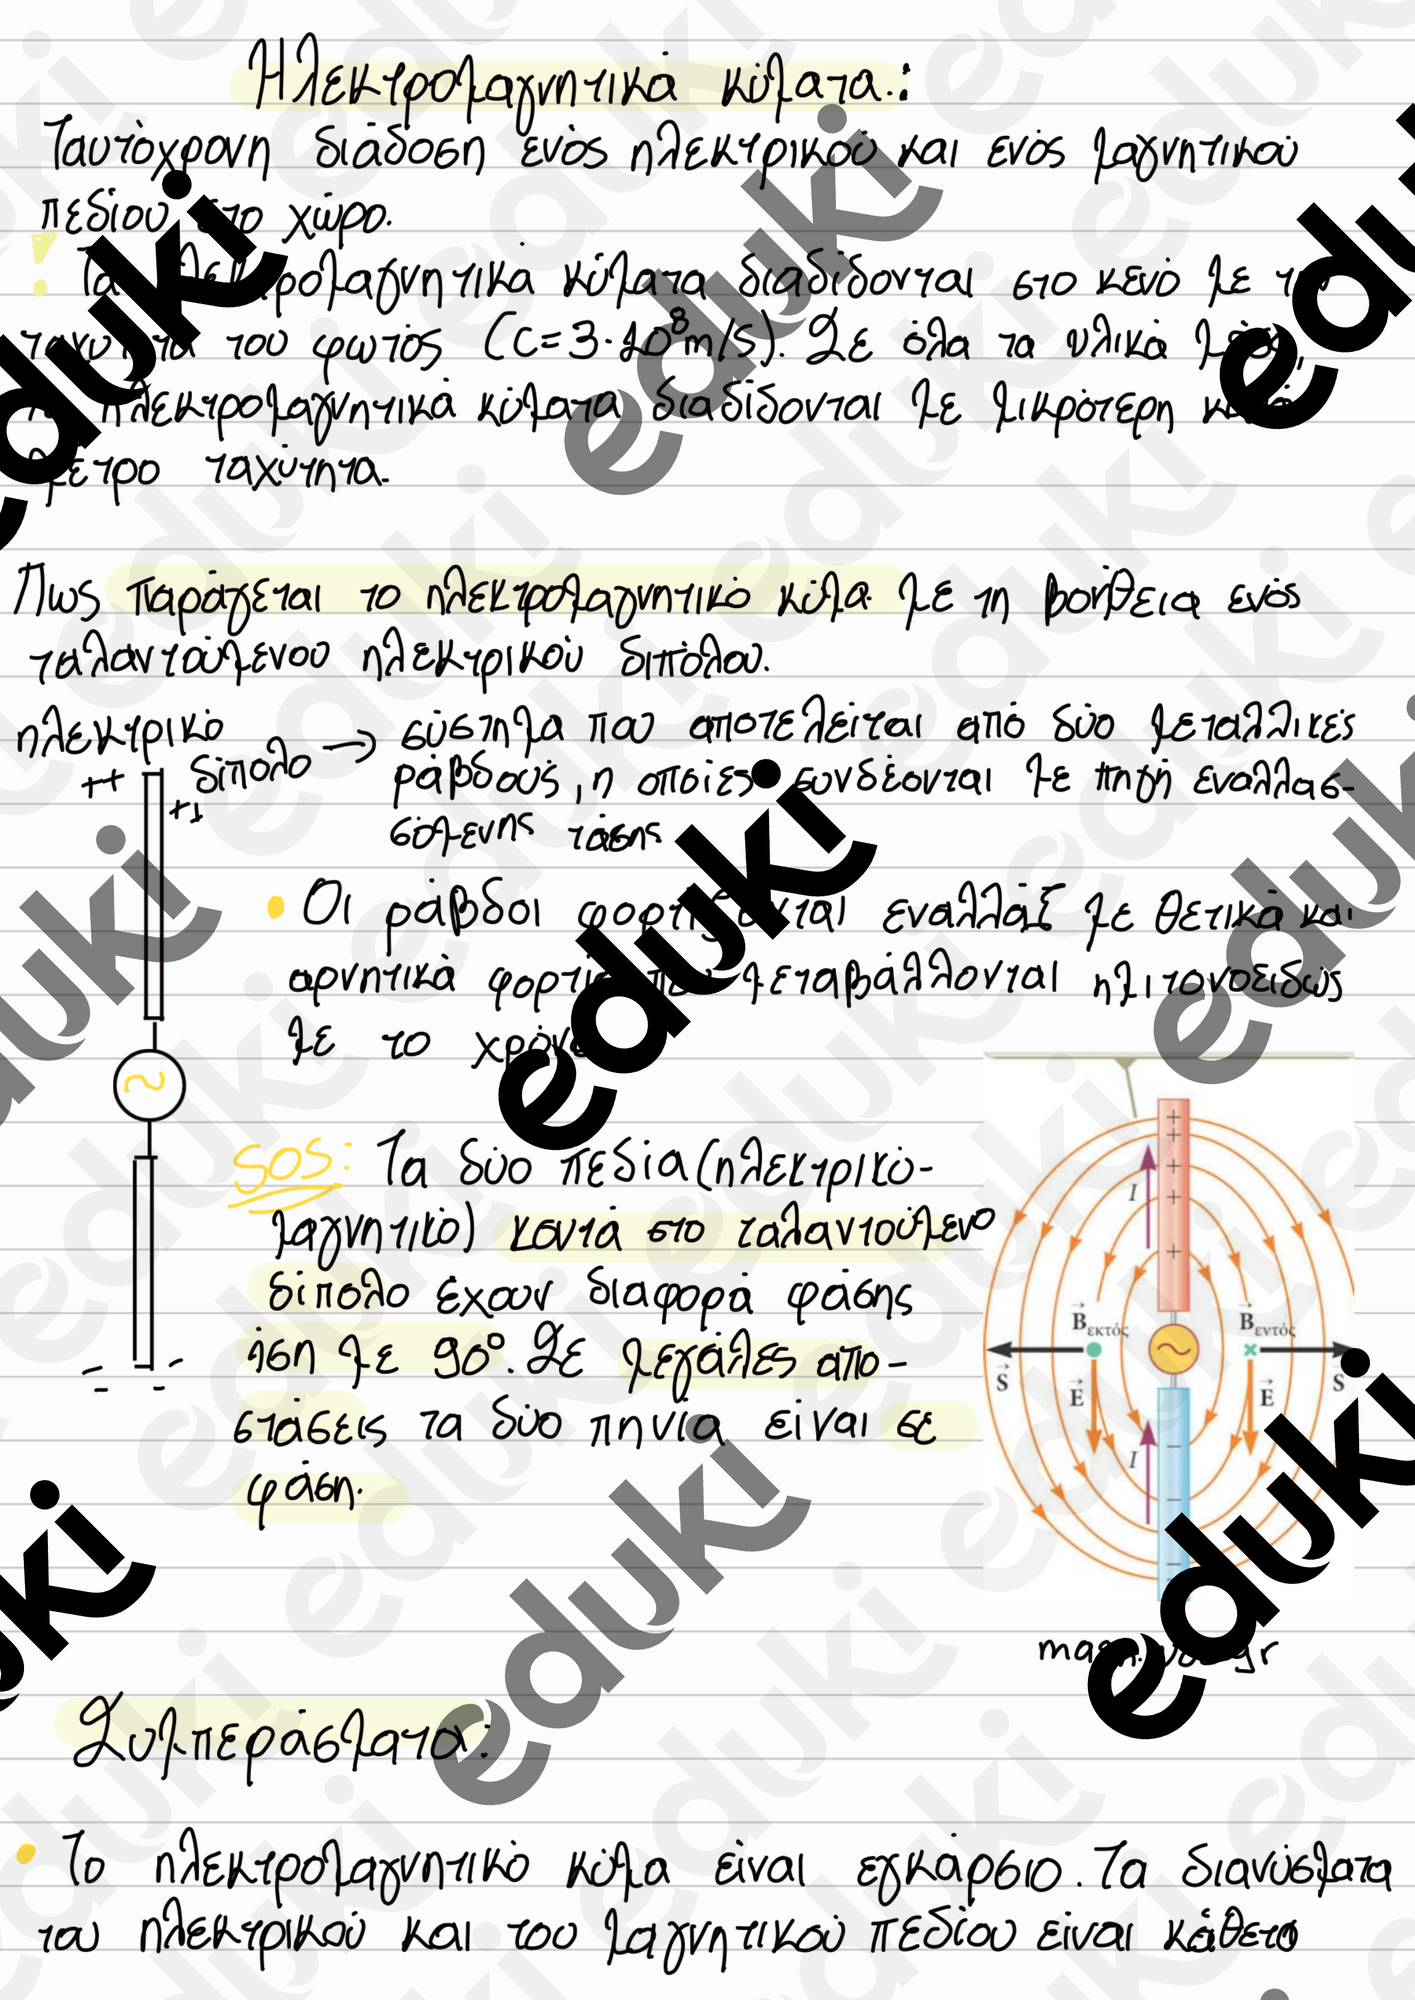 Ηλεκτρομαγνητικά κύματα:
Ταυτόχρονη διάδοση ενός ηλεκτρικού και ενός μαγνητικού
πεδίου στο χώρο.
! Τα ηλεκτρομαγνητικά κύματα διαδίδονται στο κενό με την
ταχύτητα του φωτός (c=3·10⁸m/s). Σε όλα τα υλικά μέσα,
τα ηλεκτρομαγνητικά κύματα διαδίδονται με μικρότερη κατά
μέτρο ταχύτητα.
Πως παράγεται το ηλεκτρομαγνητικό κύμα με τη βοήθεια ενός
ταλαντούμενου ηλεκτρικού διπόλου.
ηλεκτρικό δίπολο → σύστημα που αποτελείται από δύο μεταλλικές
ράβδους, η οποίες συνδέονται με πηγή εναλλασ-
σόμενης τάσης
++
++
• Οι ράβδοι φορτίζονται εναλλάξ με θετικά και
αρνητικά φορτία που μεταβάλλονται ημιτονοειδώς
με το χρόνο
~
SOS: Τα δύο πεδία (ηλεκτρικό-
μαγνητικό) κοντά στο ταλαντούμενο
δίπολο έχουν διαφορά φάσης
ίση με 90°. Σε μεγάλες απο-
στάσεις τα δύο πηνία είναι σε
φάση.
- - - -
+
+
+
+
+
I
B εκτός
B εντός
~
S
E
E
S
I
-
-
-
Συμπεράσματα:
• Το ηλεκτρομαγνητικό κύμα είναι εγκάρσιο. Τα διανύσματα
του ηλεκτρικού και του μαγνητικού πεδίου είναι κάθετα
eduki
eduki
eduki
eduki
eduki
eduki
eduki
eduki
eduki
eduki